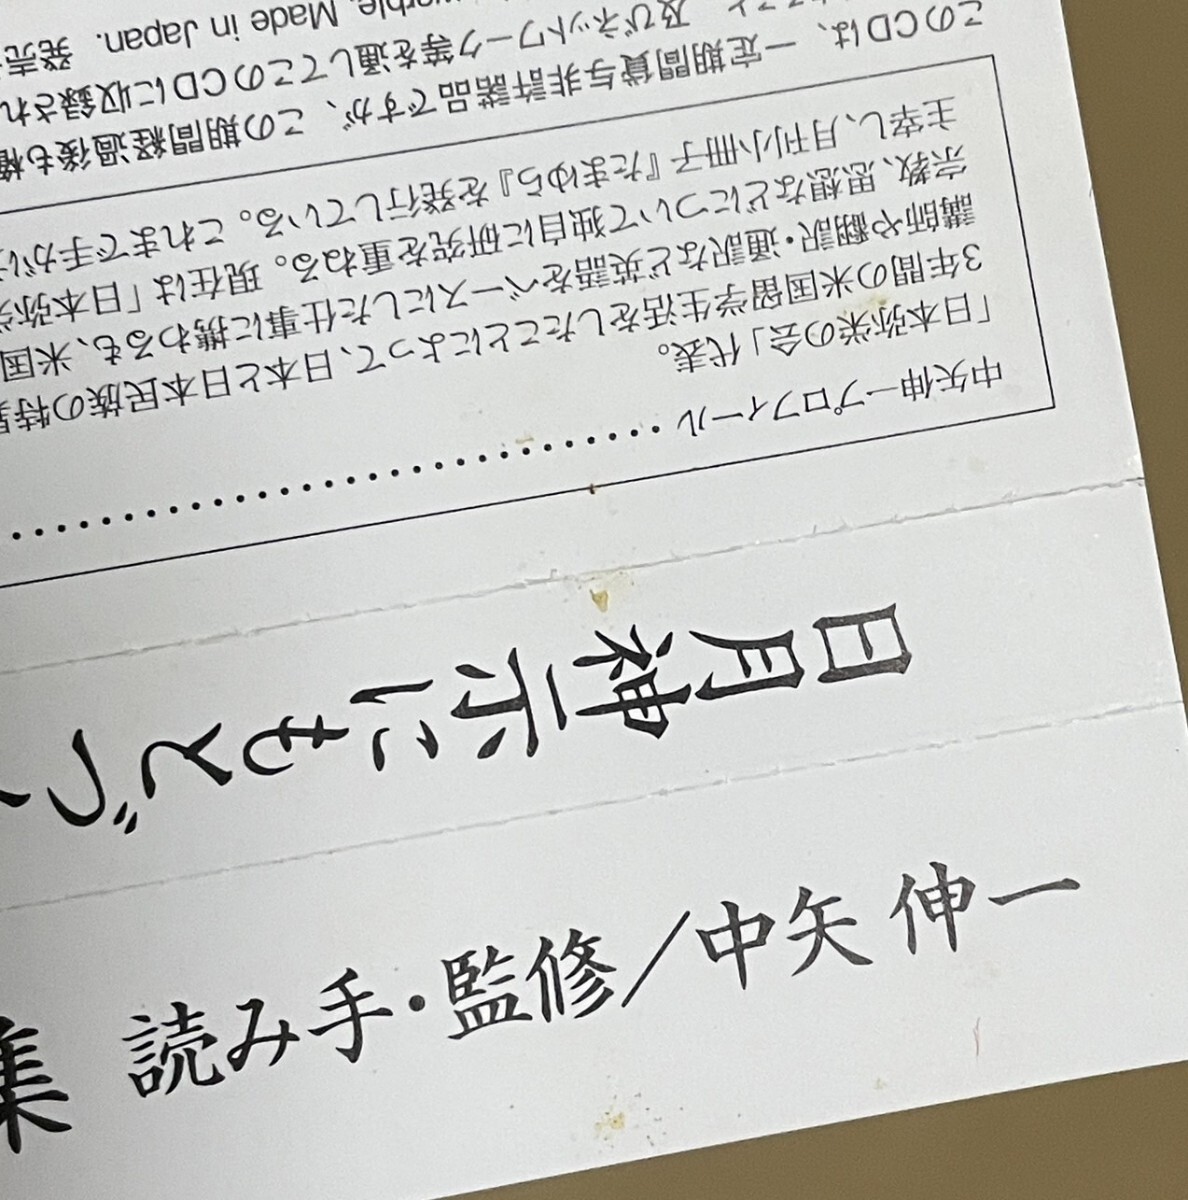 集 読み手・監修／中矢 伸一
日月神示にもとづ
中矢伸一プロフィール
「日本弥栄の会」代表。
3年間の米国留学生活をしたことによって、日本と日本民族の特
講師や翻訳・通訳など英語をベースにした仕事に携わるも、米国
宗教、思想などについて独自に研究を重ねる。現在は「日本弥栄
主宰し、月刊小冊子『たまゆら』を発行している。これまで手が
このCDは、一定期間貸与非許諾品ですが、この期間経過後も権
及びネットワーク等を通してこのCDに収録され
Made in Japan. 発売